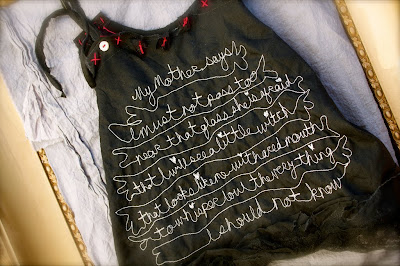 My Mother says
I must not pass too
near that glass she is afraid
that I will see a little witch
that looks like me with a red mouth
to whisper low the very thing
I should not know